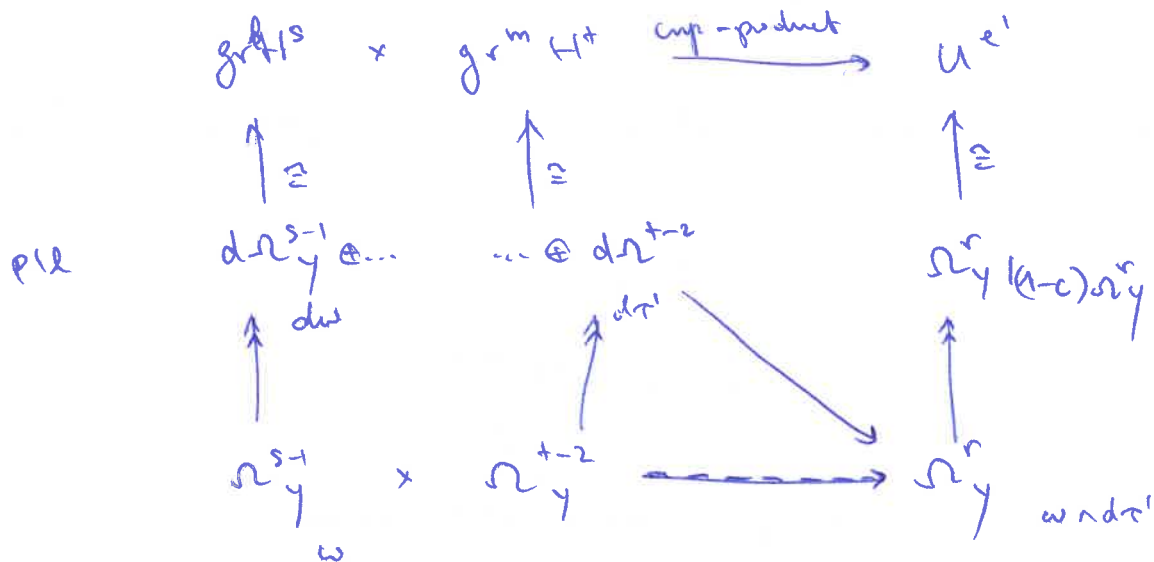 gr^l H^s × gr^m H^t cup-product U^{e'}
≅ ≅ ≅
p|l dΩ_Y^{s-1} ⊕... ... ⊕ dΩ^{t-2} Ω_Y^r /(1-C)Ω_Y^r
dω dτ'
Ω_Y^{s-1} × Ω_Y^{t-2} Ω_Y^r
ω ω∧dτ'